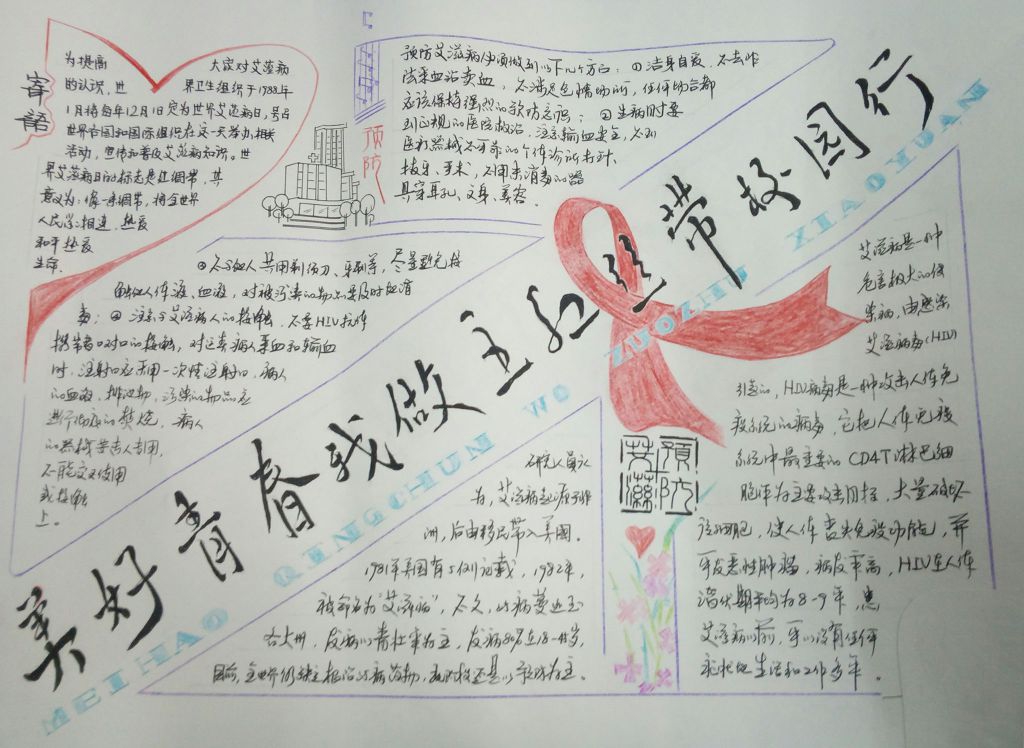 寄語
为提高 大家对艾滋病
的认识，世 界卫生组织于1988年
1月将每年12月1日定为世界艾滋病日，号召
世界各国和国际组织在这一天举办相关
活动，宣传和普及艾滋病知识。世
界艾滋病日的标志是红绸带，其
意义为：像一条绸带，将全世界
人民 相连，热爱
和平 热爱
生命.
预防
预防艾滋病必须做到以下几个方面：①洁身自爱，不去
非法采血站卖血，不涉足色情场所，任何场合都
应该保持强烈的预防意识；②生病时要
到正规的医院 ，注意输血安全，不到
医疗器械不可靠的个体诊所打针、
拔牙、手术，不用未消毒的器
具穿耳孔、文身、美容。
③不与他人共用剃须刀、牙刷等，尽量避免接
触他人体液、血液，对被污染的物品要及时
毒；④注意与艾滋病人的接触，不要HIV抗体
携带者口对口的接触，对这类病人采血和输血
时，注射 应采用一次性注射 ，病人
的血液、排泄物、污染的物品应
进行彻底的焚烧，病人
的器械 专人专用，
不能交叉使用
或接触
上。
美好青春我做主红丝带校园行
MEIHAO QINGCHUN WO ZUOZHU XIAOYUAN
艾滋病是一种
危害极大的传
染病，由感染
艾滋病毒(HIV)
引起的，HIV病毒是一种攻击人体免
疫系统的病毒，它把人体免疫
系统中最重要的CD4T淋巴细
胞作为主要攻击目标，大量破坏
该细胞，使人体丧失免疫功能，并
可发恶性肿瘤，病死率高，HIV在人体
潜伏期平均为8-9年，患
艾滋病以前，可以没有任何
症状地生活和工作多年。
預防
艾滋
研究人员认
为，艾滋病起源于非
洲，后由移民带入美国。
1981年美国有5例记载，1982年，
被命名为"艾滋病"，不久，此病蔓延至
各大州，发病以青壮年为主，发病80%在18-45岁，
目前，全世界仍缺乏根治此病药物，现阶段还是以 为主。